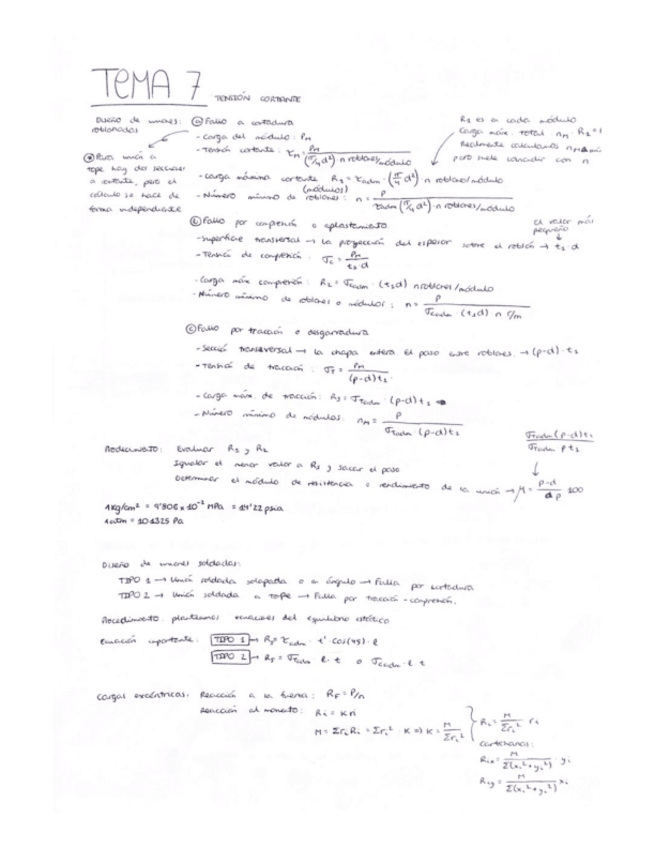 TEMA 7 TENSIÓN CORTANTE
Diseño de uniones roblonadas:
ⓐ Fallo a cortadura
- Carga del módulo: PM
- Tensión cortante: τM = PM / ((π/4 d²) · n roblones/módulo)
- Carga máxima cortante R1 = τadm · (π/4 d²) · n roblones/módulo
(módulos)
- Número mínimo de roblones: n = P / (τadm (π/4 d²) · n roblones/módulo)
R1 es a cada módulo
Carga máx. total nM · R1 =
Realmente calculamos nM
pero suele coincidir con n
* Para unión a
tope hay dos secciones
a cortante, pero el
cálculo se hace de
forma independiente
ⓑ Fallo por compresión o aplastamiento
- Superficie transversal → La proyección del espesor sobre el roblón → t2 · d
el valor más
pequeño
- Tensión de compresión: σc = PM / (t2 · d)
- Carga máx compresión: R2 = σcadm · (t2 d) n roblones/módulo
- Número mínimo de roblones o módulos: n = P / (σcadm · (t2 d) n r/m)
ⓒ Fallo por tracción o desgarradura
- Sección transversal → la chapa entera el paso entre roblones. → (p-d) · t2
- Tensión de tracción: σT = PM / ((p-d) t2)
- Carga máx. de tracción: R3 = σTadm · (p-d) t2
- Número mínimo de módulos: nM = P / (σTadm (p-d) t2)
Procedimiento: Evaluar R1 y R2
Igualar el menor valor a R3 y sacar el paso
Determinar el módulo de resistencia o rendimiento de la unión → μ = (p-d) / p · 100
σTadm (p-d) t2 / σTadm p t2
1 Kg/cm² = 9'806 x 10⁻² MPa = 14'22 psia
1 atm = 101325 Pa
Diseño de uniones soldadas:
TIPO 1 → Unión soldada solapada o en ángulo → Falla por cortadura
TIPO 2 → Unión soldada a tope → Falla por tracción - compresión.
Procedimiento: planteamos ecuaciones del equilibrio estático
Ecuación importante: TIPO 1 → RF = τadm · t' · cos(45) · l
TIPO 2 → RF = σTadm · l · t o σcadm · l · t
Cargas excéntricas: Reacción a la fuerza: RF = P/n
Reacción al momento: Ri = K ri
M = Σri Ri = Σri² · K ⇒ K = M / Σri²
Ri = M / Σri² · ri
Cartesianas:
Rix = M / Σ(xi² + yi²) · yi
Riy = M / Σ(xi² + yi²) · xi